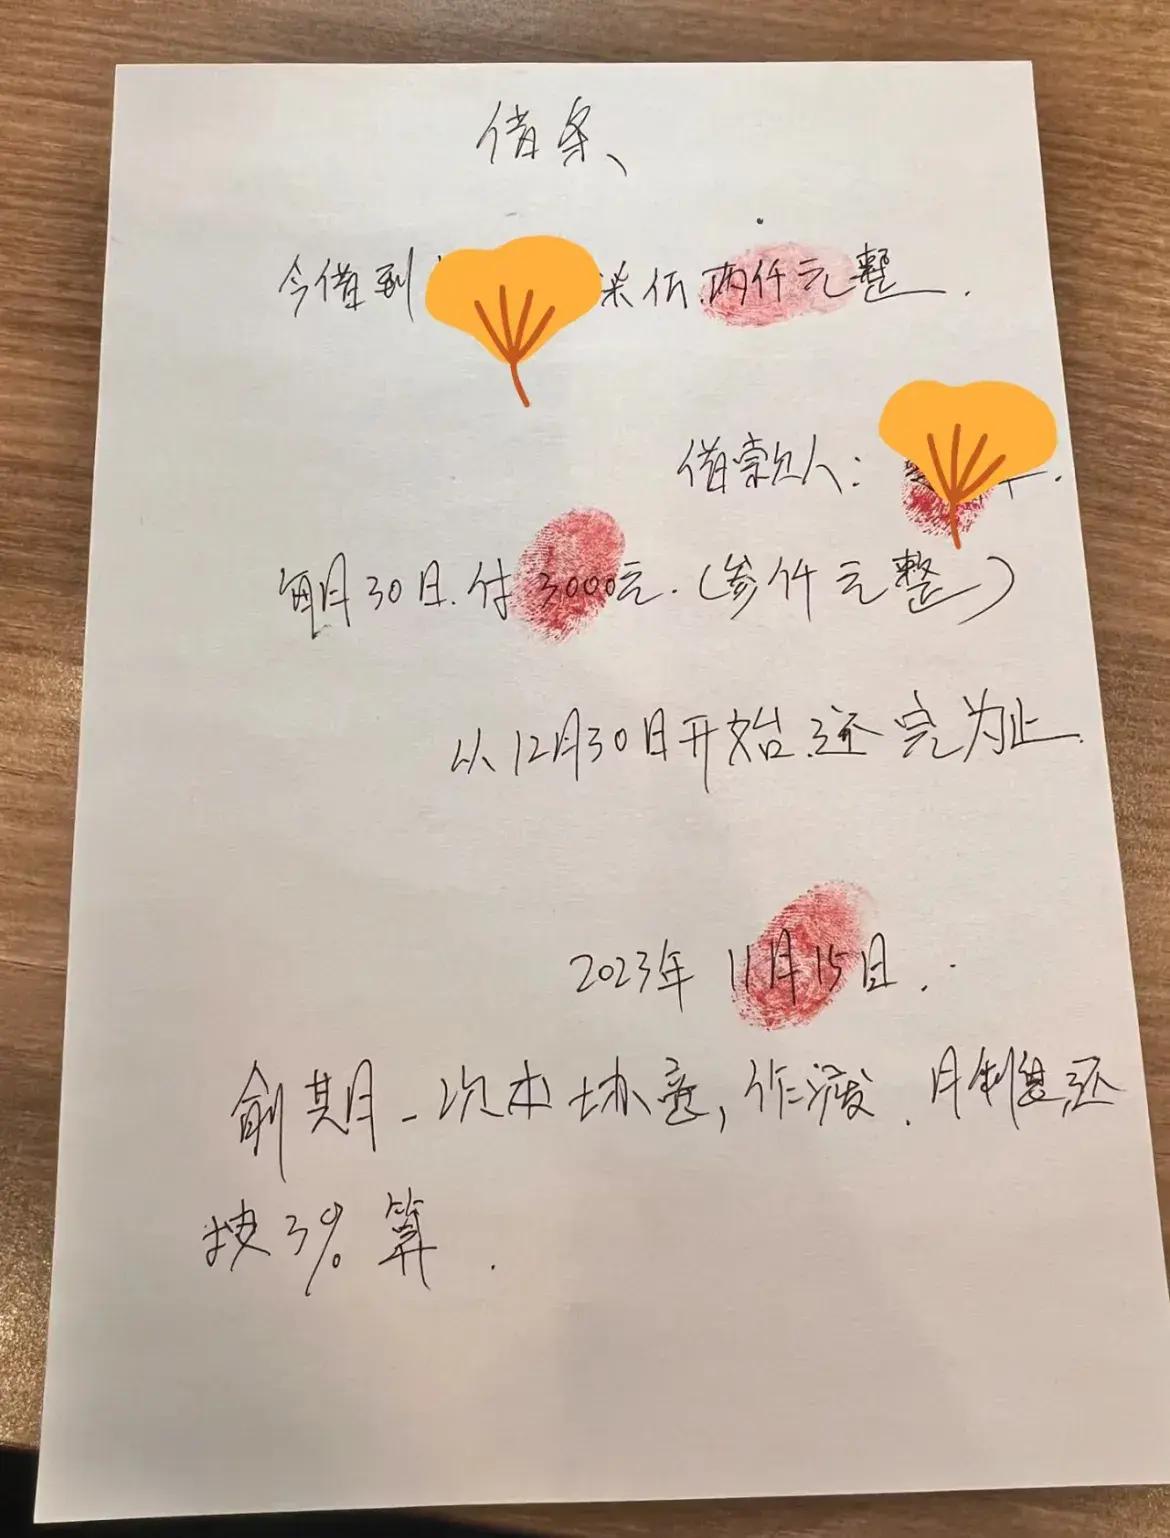 借条、
今借到 柒佰两仟元整.
借款人:
每月30日.付3000元.(参仟元整)
从12月30日开始.还完为止.
2023年 11月15日.
俞期一次本协意,作溌.月利息还
按3%算.